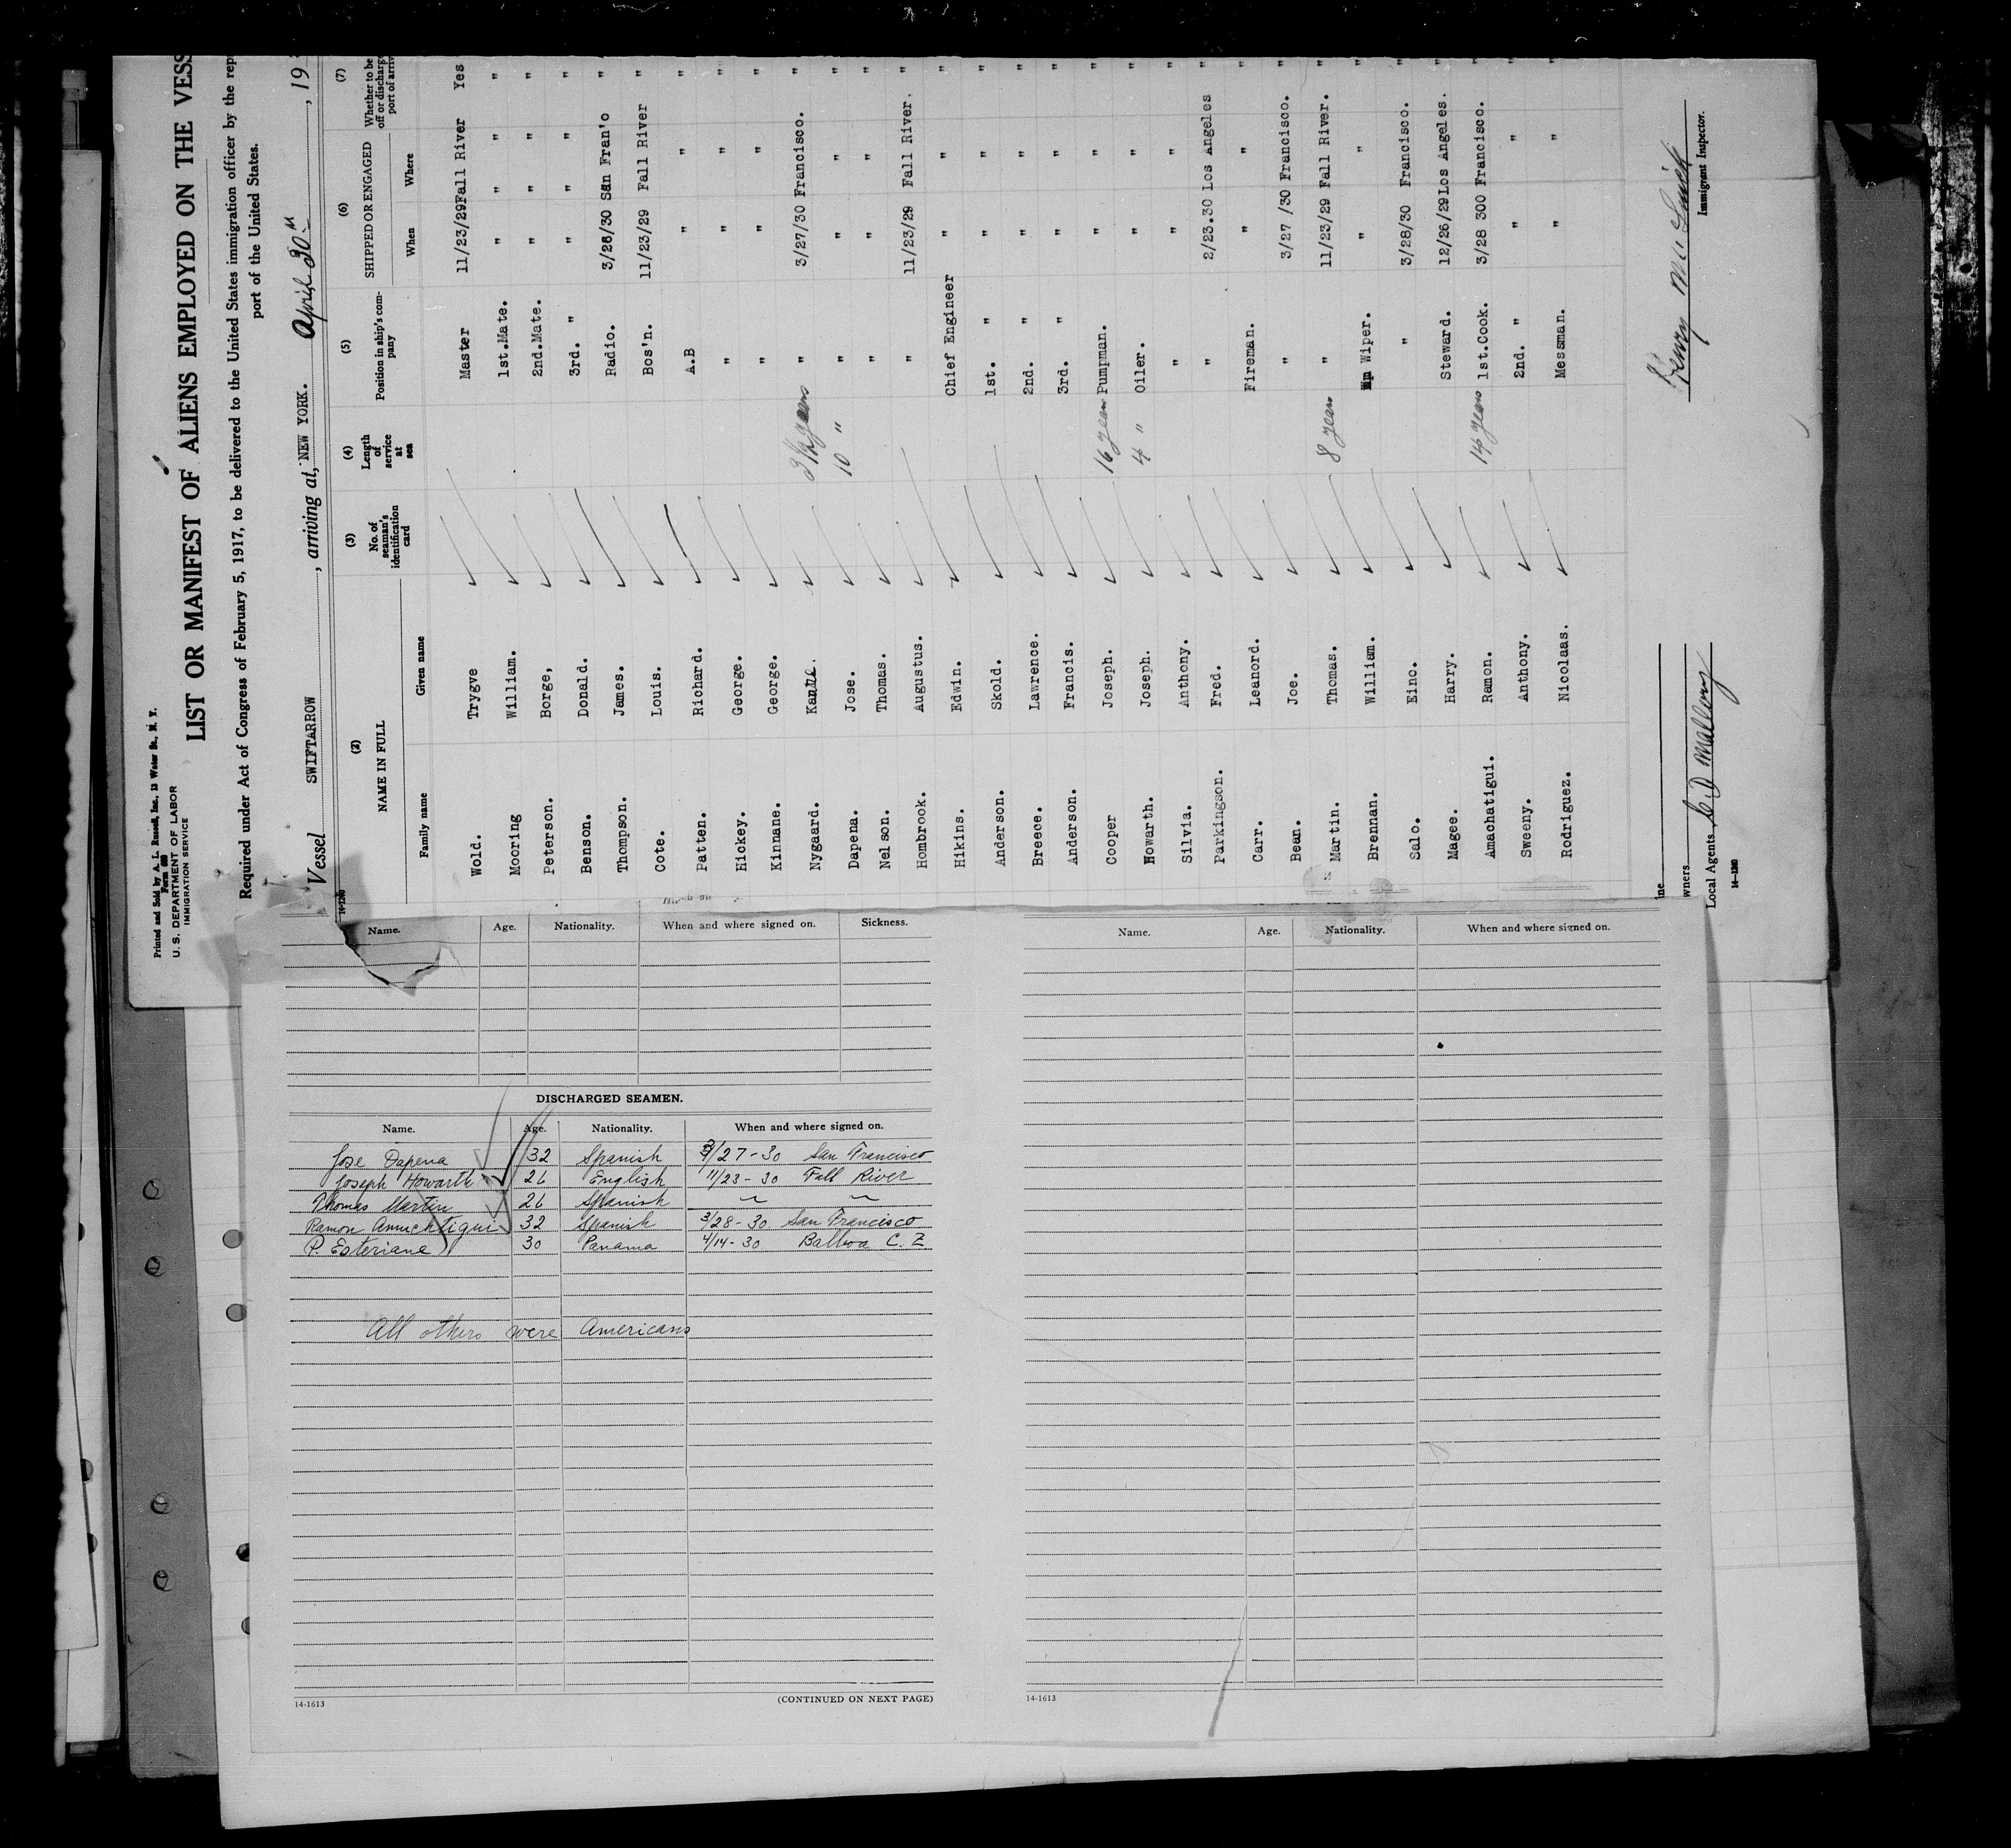 Printed and Sold by A. L. Russell, Inc., 13 Water St., N. Y.
Form 689
U. S. DEPARTMENT OF LABOR
IMMIGRATION SERVICE
LIST OR MANIFEST OF ALIENS EMPLOYED ON THE VESS
Required under Act of Congress of February 5, 1917, to be delivered to the United States immigration officer by the rep
port of the United States.
Vessel SWIFTARROW, arriving at, NEW YORK. April 30th, 19
14-1240
(2) (3) (4) (5) (6) (7)
NAME IN FULL No. of seaman's identification card Length of service at sea Position in ship's company SHIPPED OR ENGAGED Whether to be off or discharge port of arriv
Family name Given name When Where
Wold. Trygve Master 11/23/29 Fall River Yes
Mooring William. 1st.Mate. " " " "
Peterson. Borge, 2nd.Mate. " " "
Benson. Donald. 3rd. " " " "
Thompson. James. Radio. 3/26/30 San Fran'o "
Cote. Louis. Bos'n. 11/23/29 Fall River "
Patten. Richard. A.B " " "
Hickey. George. " " " "
Kinnane. George. " " " "
Nygaard. 3½ years " 3/27/30 Francisco. "
Dapena. Jose. 10 " " " " "
Nelson. Thomas. " " " "
Hombrook. Augustus. " 11/23/29 Fall River. "
Hikins. Edwin. Chief Engineer " " "
Anderson. Skold. 1st. " " " "
Breece. Lawrence. 2nd. " " " "
Anderson. Francis. 3rd. " " " "
Cooper Joseph. 16 year Pumpman. " " "
Howarth. Joseph. 4 " Oiler. " " "
Silvia. Anthony. " " " "
Parkingson. Fred. " 2/23.30 Los Angeles "
Carr. Leanord. Fireman. " " "
Bean. Joe. " 3/27 /30 Francisco. "
Martin. Thomas. 8 year " 11/23/29 Fall River. "
Brennan. William. Wiper. " " "
Salo. Eino. " 3/28/30 Francisco. "
Magee. Harry. Steward. 12/26/29 Los Angeles. "
Amachatigui. Ramon. 14 years 1st.Cook. 3/28 300 Francisco. "
Sweeny. Anthony. 2nd. " " " "
Rodriguez. Nicolaas. Messman. " " "
ine
wners
Local Agents C D Mallory
Immigrant Inspector.
Name. Age. Nationality. When and where signed on. Sickness.
DISCHARGED SEAMEN.
Name. Age. Nationality. When and where signed on.
Jose Dapena 32 Spanish 3/27-30 San Francisco
Joseph Howarth 26 English 11/23-30 Fall River
Thomas Martin 26 Spanish " "
Ramon Amuchtigui 32 Spanish 3/28-30 San Francisco
P. Esteriane 30 Panama 4/14-30 Balboa C. Z
All others were Americans
14-1613 (CONTINUED ON NEXT PAGE)
Name. Age. Nationality. When and where signed on.
14-1613